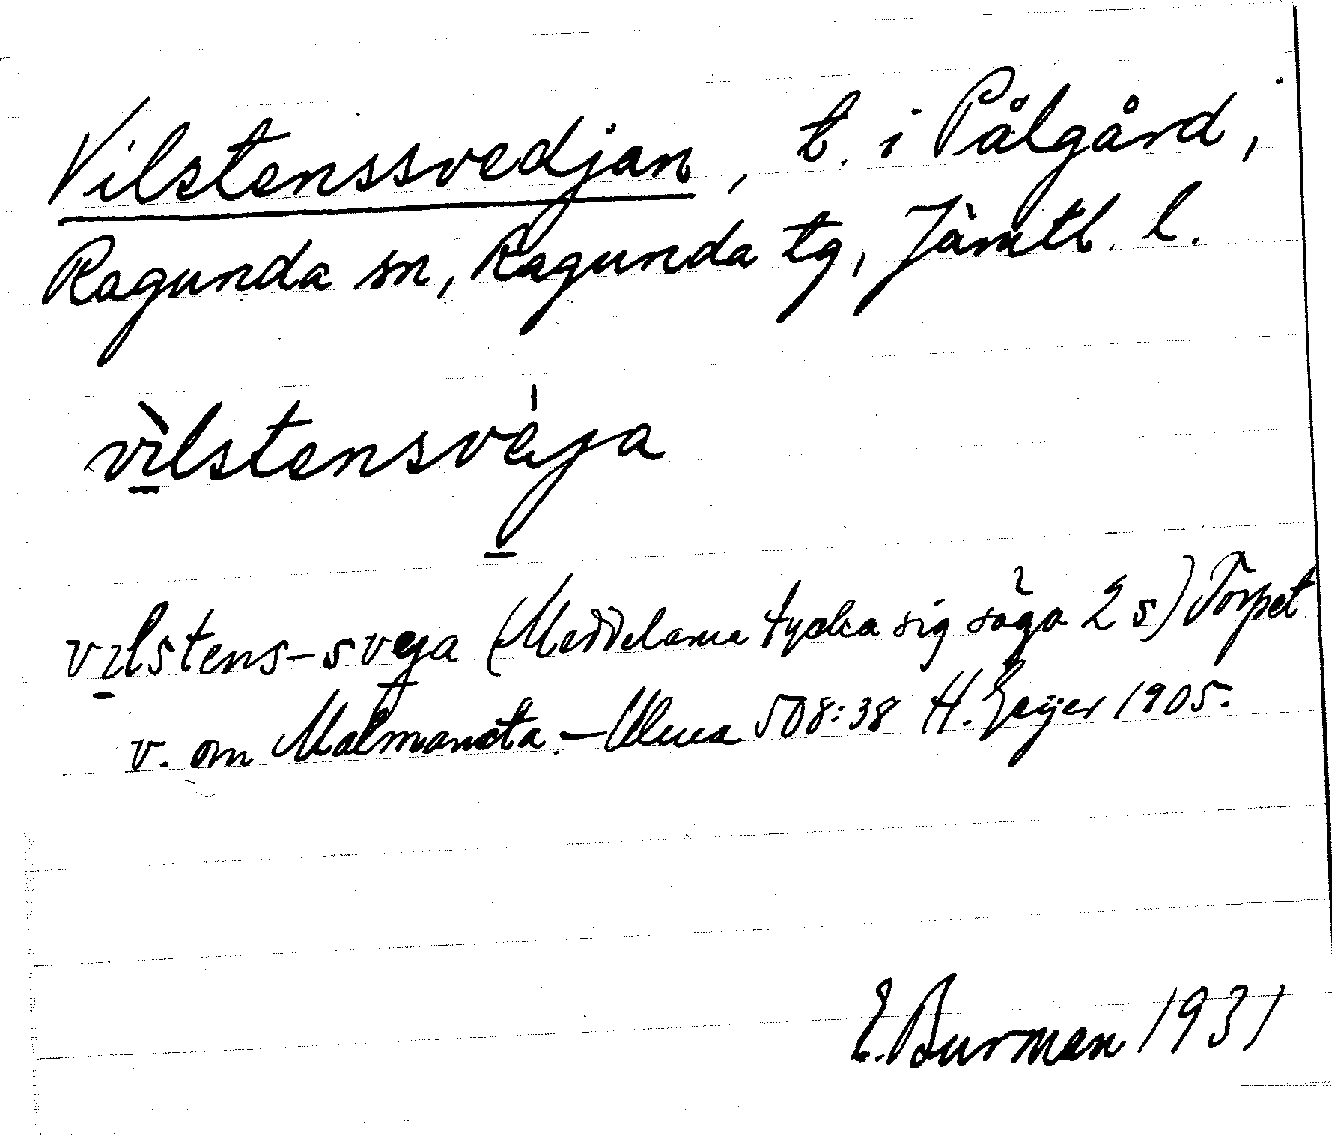 Vilstenssvedjan, t. i Pålgård,
Ragunda sn, Ragunda tg, Jämtl. l.
vìlstensvéja
vilstens-sveja (Meddelarne tycka sig säga 2 s) Torpet
v. om Malmansta. - 508:38 H. Geijer 1905.
E. Burman 1931